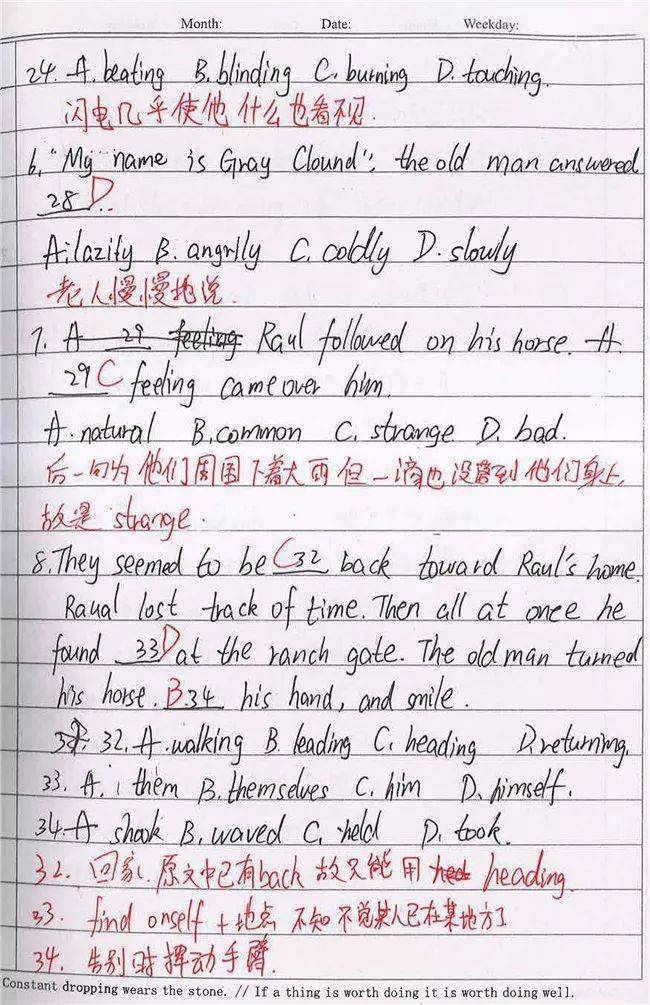 Month: Date: Weekday:
24. A. beating B. blinding C. burning D. touching.
闪电几乎使他什么也看不见.
6. "My name is Gray Clound", the old man answered
28 D.
A. lazity B. angrily C. coldly D. slowly
老人慢慢地说.
7. A 29 feeling Raul followed on his horse. A
29 C feeling came over him.
A. natural B. common C. strange D. bad.
后一句为他们周围下着大雨但一滴也没落到他们身上,
故是 strange.
8. They seemed to be C 32 back toward Raul's home.
Raual lost track of time. Then all at once he
found 33 D at the ranch gate. The old man turned
his horse. B 34 his hand, and smile.
32. A. walking B. leading C. heading D. returning.
33. A. them B. themselves C. him D. himself.
34. A shook B. waved C. held D. took.
32. 回家. 原文中已有back 故只能用 heading.
33. find onself + 地点 不知不觉某人已在某地方了
34. 告别时挥动手臂.
Constant dropping wears the stone. // If a thing is worth doing it is worth doing well.